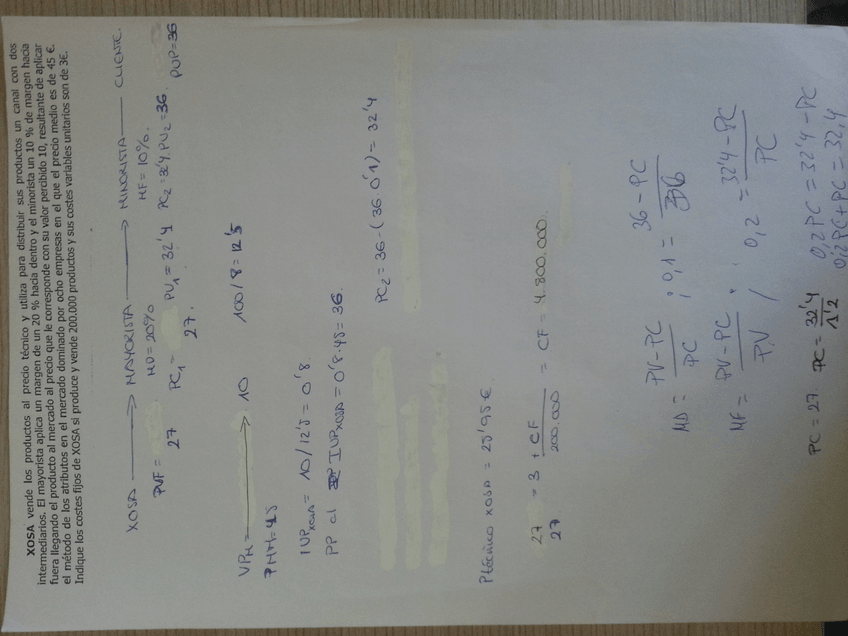 XOSA vende los productos al precio técnico y utiliza para distribuir sus productos un canal con dos
intermediarios. El mayorista aplica un margen de un 20 % hacia dentro y el minorista un 10 % de margen hacia
fuera llegando el producto al mercado al precio que le corresponde con su valor percibido 10, resultante de aplicar
el método de los atributos en el mercado dominado por ocho empresas en el que el precio medio es de 45 €.
Indique los costes fijos de XOSA si produce y vende 200.000 productos y sus costes variables unitarios son de 3€.
XOSA → MAYORISTA → MINORISTA — CLIENTE
MD=20% MF=10%.
PVF= PC1= PV1=32'4 PC2=32'4 PV2=36 PVP=36
27 27.
VPM → 10 100/8=12'5
PMM=45
IVPXOSA= 10/12'5=0'8
PP cl IVPXOSA=0'8·45=36.
PC2=36-(36·0'1)=32'4
Ptécnico XOSA = 25'95€
27 = 3 + CF/200.000 = CF=4.800.000.
27
MD= PV-PC/PC ; 0,1= 36-PC/36
MF= PV-PC/PV ; 0,2 = 32'4-PC/PC
PC=27. PC=32'4/1'2 0,2PC=32'4-PC
0,2PC+PC=32,4